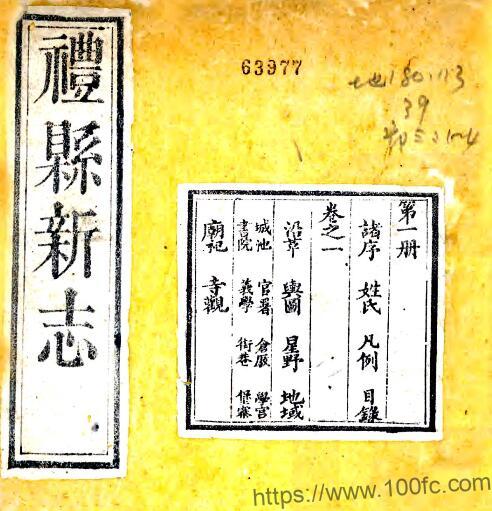 禮縣新志
63977
39
第一册
諸序 姓氏 凡例 目錄
卷之一
沿革 輿圖 星野 地域
城池 官署 倉廒 學宮
書院 義學 街巷 堡寨
廟祀 寺觀
https://www.100fc.com